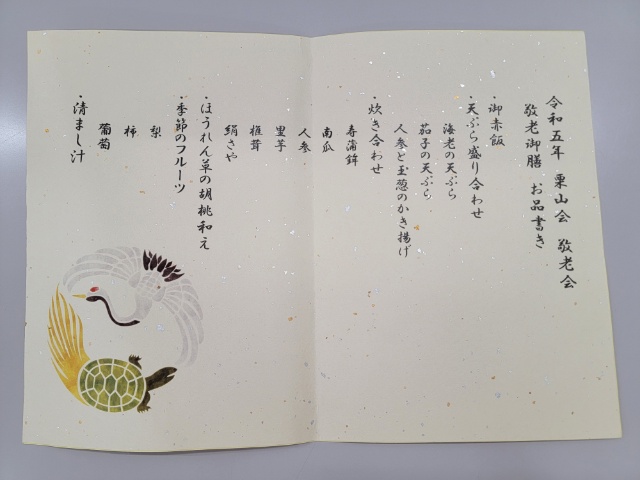 令和五年 栗山会 敬老会
敬老御膳 お品書き
・御赤飯
・天ぷら盛り合わせ
海老の天ぷら
茄子の天ぷら
人参と玉葱のかき揚げ
・炊き合わせ
寿蒲鉾
南瓜
人参
里芋
椎茸
絹さや
・ほうれん草の胡桃和え
・季節のフルーツ
梨
柿
葡萄
・清まし汁